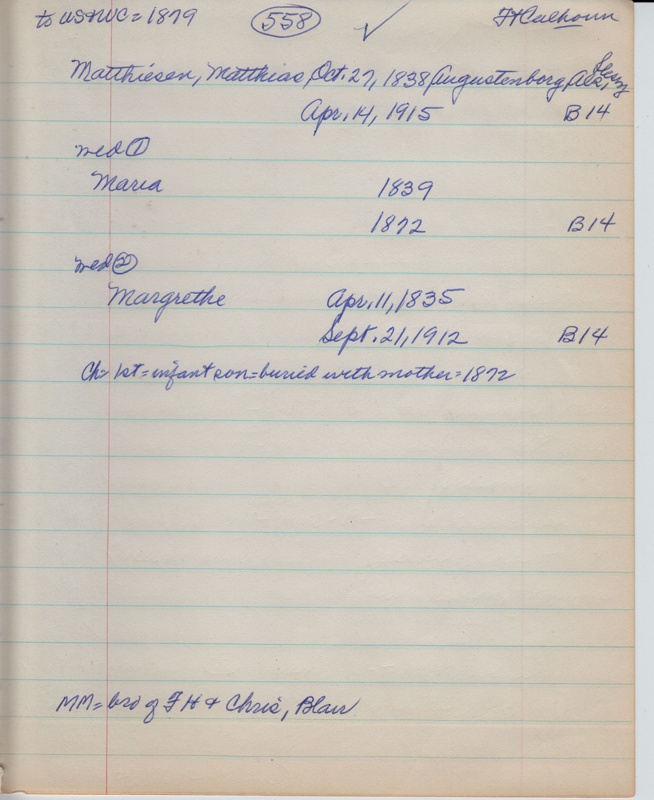 to US+WC = 1879 558 ✓ Ft Calhoun
Matthiesen, Matthias Oct. 27, 1838 Augustenborg, Als,
Apr. 14, 1915 B14
med ①
Maria 1839
1872 B14
med ②
Margrethe Apr. 11, 1835
Sept. 21, 1912 B14
Ch= 1st = infant son = buried with mother = 1872
MM= bro of FH & Chris, Blair